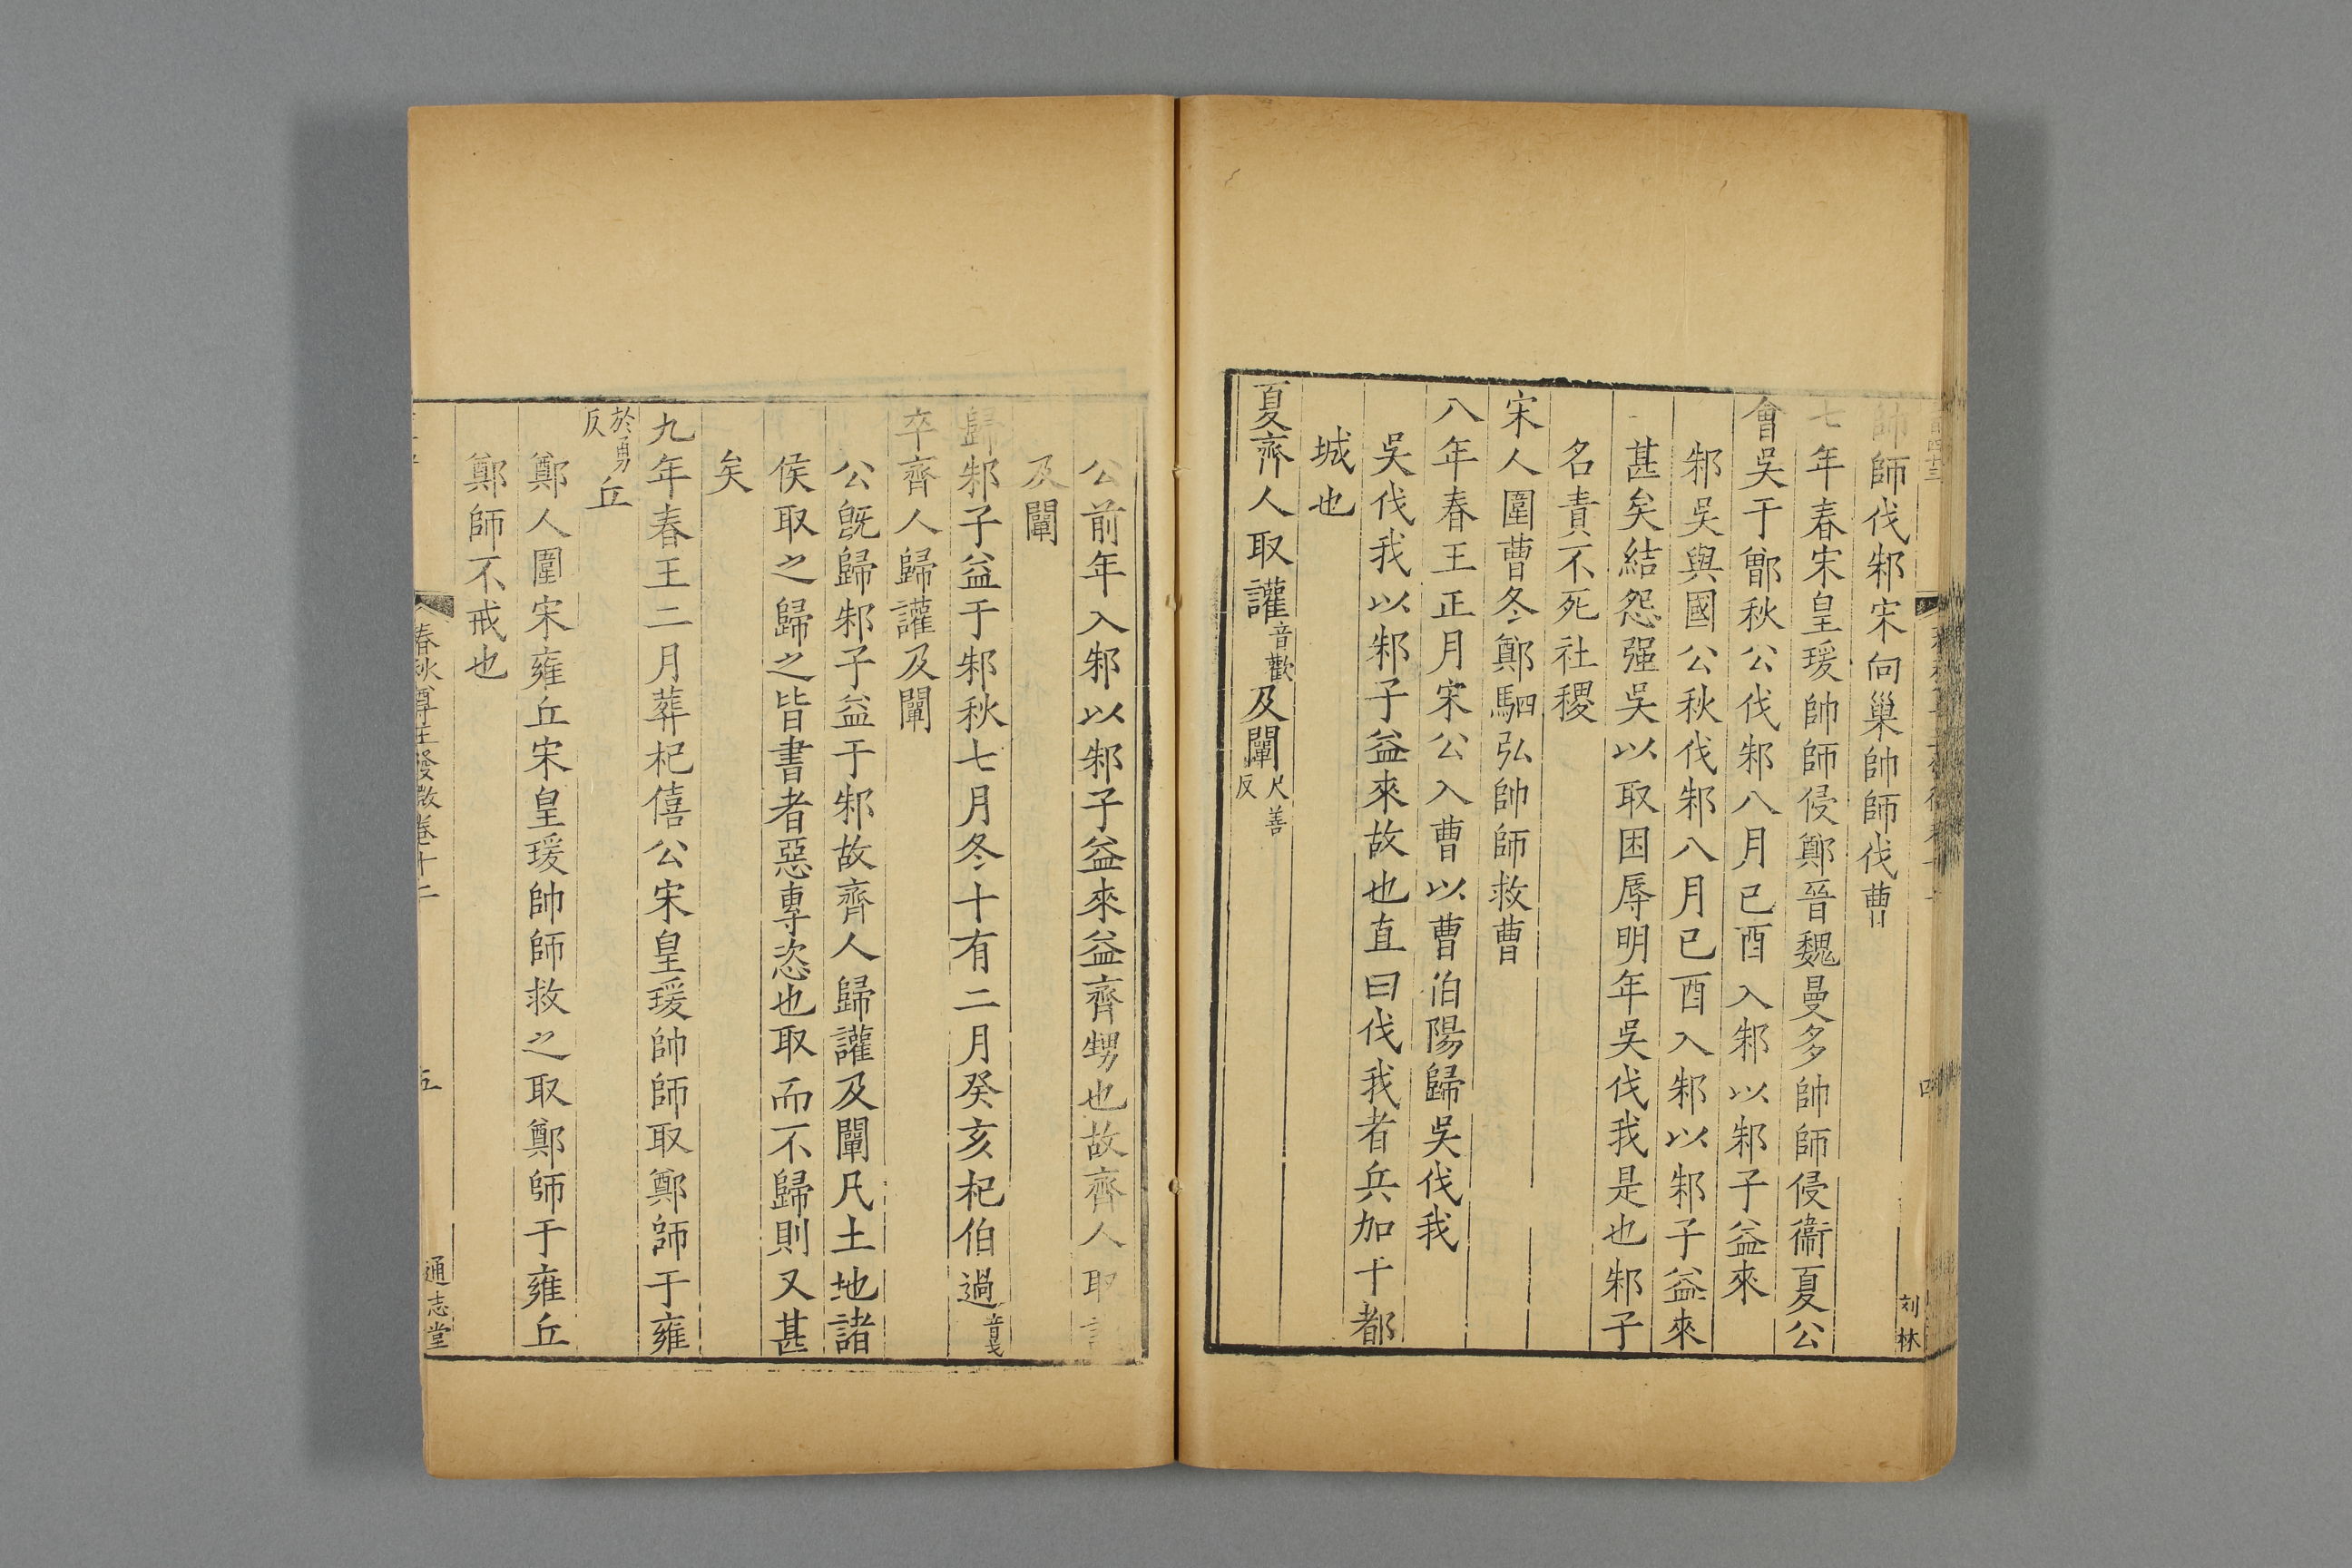 帥師伐邾宋向巢帥師伐曹
七年春宋皇瑗帥師侵鄭晉魏曼多帥師侵衞夏公
會吳于鄫秋公伐邾八月已酉入邾以邾子益來
邾吳與國公秋伐邾八月已酉入邾以邾子益來
甚矣結怨强吳以取困辱明年吳伐我是也邾子
名責不死社稷
宋人圍曹冬鄭駟弘帥師救曹
八年春王正月宋公入曹以曹伯陽歸吳伐我
吳伐我以邾子益來故也直曰伐我者兵加于都
城也
夏齊人取讙音歡及闡尺善反
刘林
四
公前年入邾以邾子益來益齊甥也故齊人取
及闡
歸邾子益于邾秋七月冬十有二月癸亥杞伯過音戈
卒齊人歸讙及闡
公旣歸邾子益于邾故齊人歸讙及闡凡土地諸
侯取之歸之皆書者惡專恣也取而不歸則又甚
矣
九年春王二月葬杞僖公宋皇瑗帥師取鄭師于雍
於勇反丘
鄭人圍宋雍丘宋皇瑗帥師救之取鄭師于雍丘
鄭師不戒也
春秋尊王發微卷十二
五
通志堂